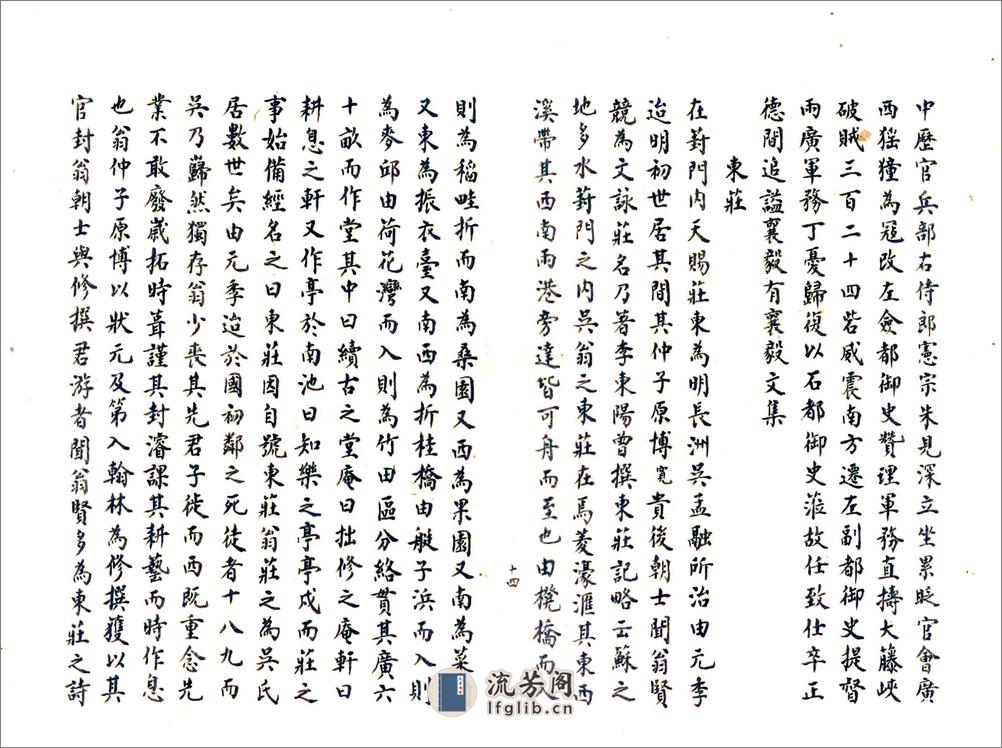 中歷官兵部右侍郎憲宗朱見深立坐累貶官會廣
西猺獞為冦改左僉都御史贊理軍務直擣大籐峽
破賊三百二十四砦威震南方遷左副都御史提督
兩廣軍務丁憂歸復以右都御史涖故任致仕卒正
德間追謚襄毅有襄毅文集
東莊
在葑門內天賜莊東為明長洲吳孟融所治由元季
迨明初世居其間其仲子原博寬貴後朝士聞翁賢
競為文詠莊名乃著李東陽曾撰東莊記略云蘇之
地多水葑門之內吳翁之東莊在焉菱濠滙其東西
溪帶其西南兩港旁達皆可舟而至也由櫈橋而入
十四
則為稻畦折而南為桑園又西為果園又南為菜
又東為振衣臺又南西為折桂橋由艇子浜而入則
為麥邱由荷花灣而入則為竹田區分絡貫其廣六
十畝而作堂其中曰續古之堂庵曰拙修之庵軒曰
耕息之軒又作亭於南池曰知樂之亭亭成而莊之
事始備經名之曰東莊因自號東莊翁莊之為吳氏
居數世矣由元季迨於國初鄰之死徒者十八九而
吳乃巋然獨存翁少喪其先君子徙而西既重念先
業不敢廢歲拓時葺謹其封濬課其耕藝而時作息
也翁仲子原博以狀元及第入翰林為修撰獲以其
官封翁朝士與修撰君游者聞翁賢多為東莊之詩
流芳阁
lfglib.cn